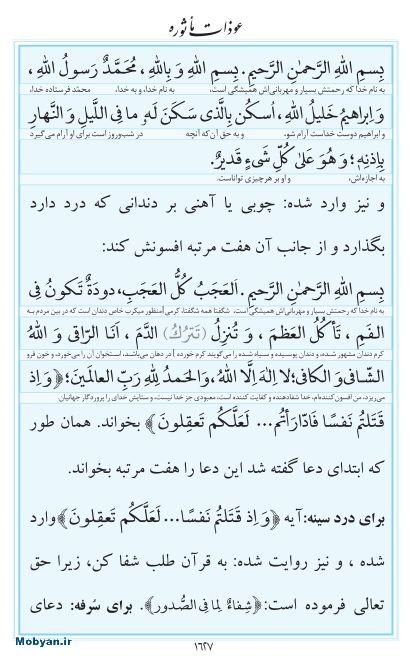 عوذات مأثوره
بِسمِ اللهِ الرَّحمٰنِ الرَّحيمِ. بِسمِ اللهِ وَ بِاللهِ، مُحَمَّدٌ رَسولُ اللهِ،
به نام خدا که رحمتش بسیار و مهربانی‌اش همیشگی است، به نام خدا، و به خدا، محمّد فرستاده خدا
وَ اِبراهیمُ خَلیلُ اللهِ، اُسکُن بِالَّذی سَکَنَ لَهٗ ما فِی اللَّیلِ وَ النَّهارِ
و ابراهیم دوست خداست آرام شو، و به حق آن که آنچه در شب‌و‌روز است برای او آرام می‌گیرد
بِاِذنِهٖ؛ وَ هُوَ عَلیٰ کُلِّ شَیءٍ قَدیرٌ.
به اجازه‌اش، و او بر هرچیزی تواناست.
و نیز وارد شده: چوبی یا آهنی بر دندانی که درد دارد
بگذارد و از جانب آن هفت مرتبه افسونش کند:
بِسمِ اللهِ الرَّحمٰنِ الرَّحیمِ. اَلعَجَبُ کُلُّ العَجَبِ، دودَةٌ تَکونُ فِی
به نام خدا که رحمتش بسیار و مهربانی‌اش همیشگی است، شگفتا همه شگفتا، کرمی [منظور میکرب خاص دندان است که در بین مردم به
الفَمِ، تَأکُلُ العَظمَ، وَ تُنزِلُ (تَترُكُ) الدَّمَ، اَنَا الرّاقی وَ اللهُ
کرم دندان مشهور شده، و دندان پوسیده و سیاه شده را می‌گویند کرم خورده] در دهان می‌باشد، استخوان آن را می‌خورد، و خون فرو
الشّافی وَ الکافی؛ لا اِلٰهَ اِلَّا اللهُ، وَالحَمدُ لِلهِ رَبِّ العالَمینَ؛ ﴿وَ اِذ
می‌ریزد، من افسون کننده‌ام، خدا شفادهنده و کفایت کننده است، معبودی جز خدا نیست، و ستایش خدای را پروردگار جهانیان.
قَتَلتُم نَفسًا فَادّارَأتُم... لَعَلَّکُم تَعقِلونَ﴾ بخواند. همان طور
که ابتدای دعا گفته شد این دعا را هفت مرتبه بخواند.
برای درد سینه: آیه ﴿وَ اِذ قَتَلتُم نَفسًا... لَعَلَّکُم تَعقِلونَ﴾ وارد
شده ، و نیز روایت شده: به قرآن طلب شفا کن، زیرا حق
تعالی فرموده است: ﴿شِفاءٌ لِما فِی الصُّدورِ﴾. برای سُرفه: دعای
۱۶۲۷
Mobyan.ir